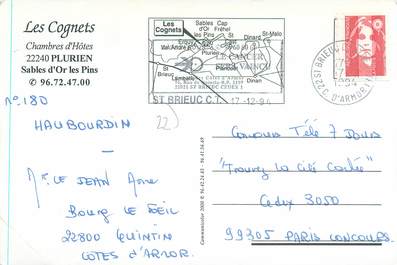 Les Cognets
Chambres d'Hôtes
22240 PLURIEN
Sables d'Or les Pins
✆ 96.72.47.00
Les
Cognets
Sables
d'Or
les Pins
Cap
Fréhel
St-Malo
Erquy
Val-André
Dinard
St
Brieuc
Lamballe
Dinan
LE CANCER
VAINCU
22021 ST BRIEUC CEDEX 1
ST BRIEUC C.T. 17-12-94
22 ST BRIEUC C.T.
C. D'ARMOR
n° 180
HAUBOURDIN
22
LE JEAN Anne
BOURG LE
22800 QUINTIN
COTES D'ARMOR.
Concours Télé 7 Jours
"Trouvez la cité cachée"
Cedex 3050
99305 PARIS CONCOURS